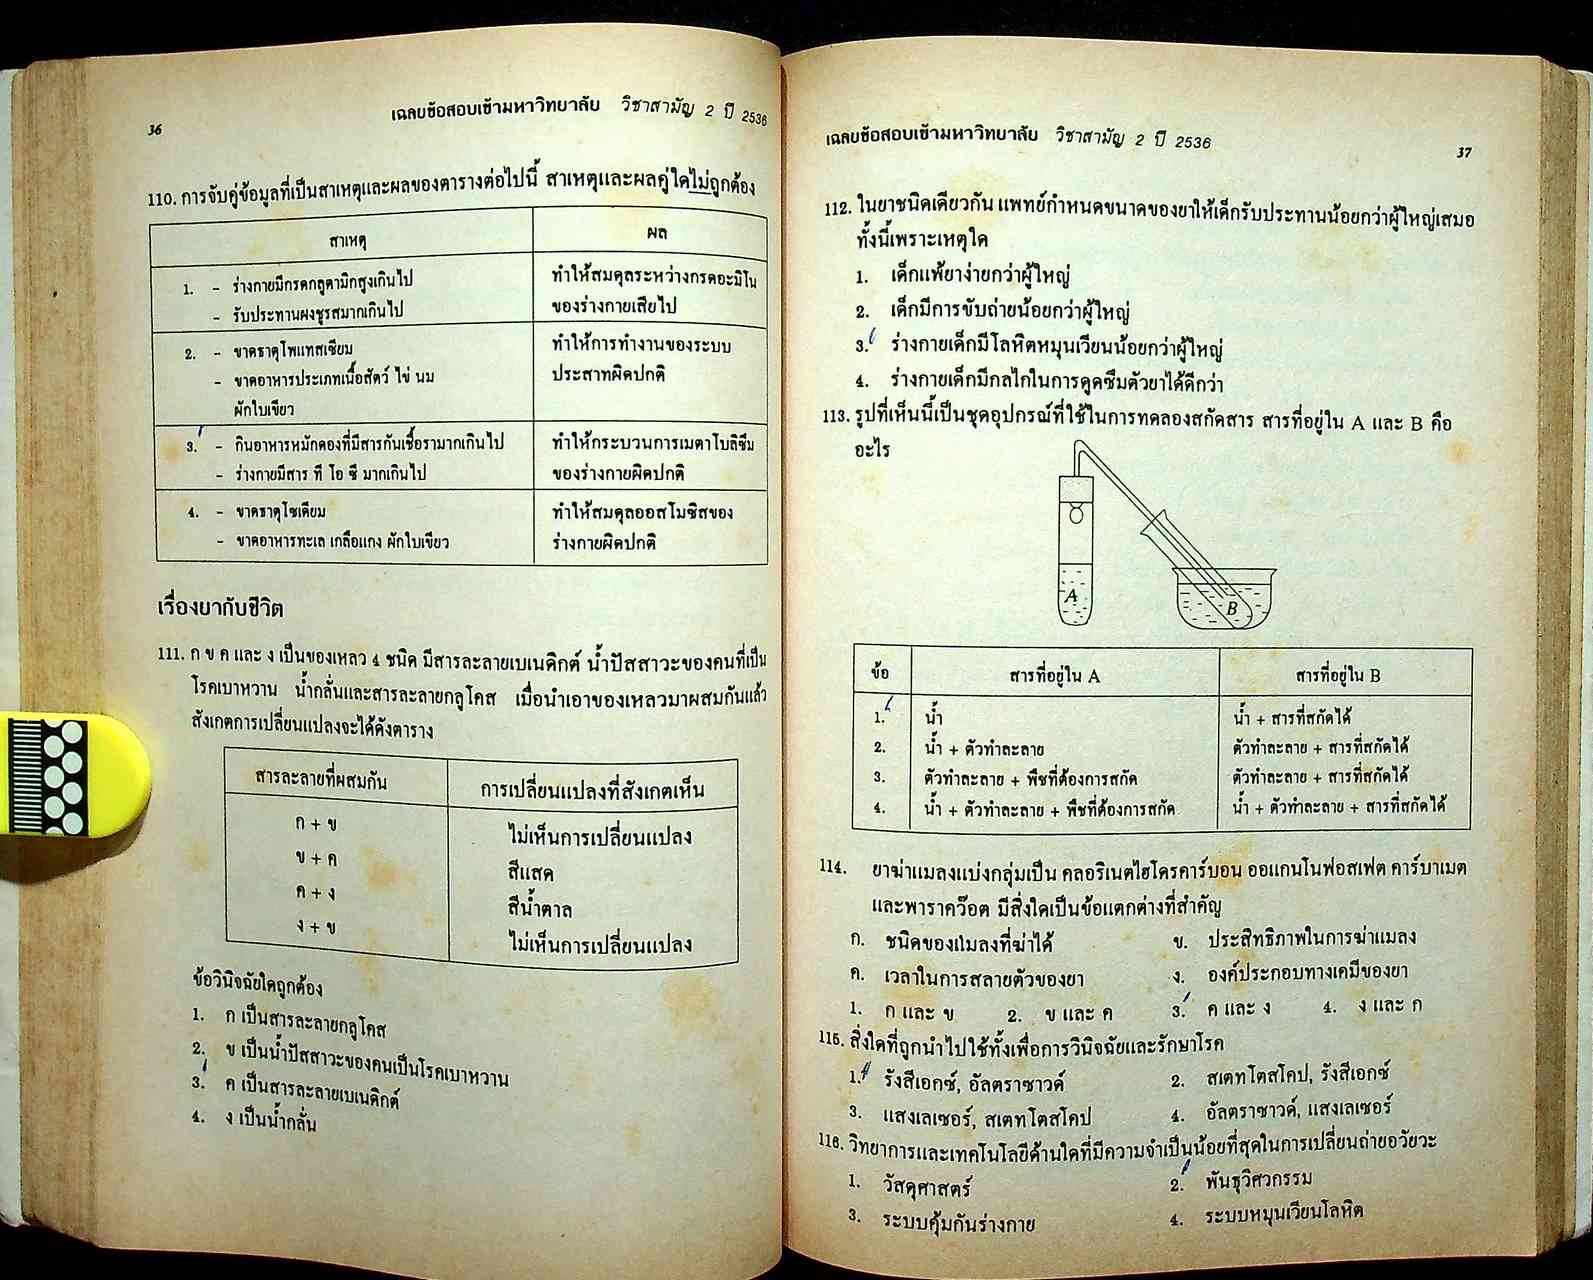 36
เฉลยข้อสอบเข้ามหาวิทยาลัย วิชาสามัญ 2 ปี 2536
110. การจับคู่ข้อมูลที่เป็นสาเหตุและผลของตารางต่อไปนี้ สาเหตุและผลคู่ใดไม่ถูกต้อง
สาเหตุ ผล
1. - ร่างกายมีกรดกลูตามิกสูงเกินไป ทำให้สมดุลระหว่างกรดอะมิโน
- รับประทานผงชูรสมากเกินไป ของร่างกายเสียไป
2. - ขาดธาตุโพแทสเซียม ทำให้การทำงานของระบบ
- ขาดอาหารประเภทเนื้อสัตว์ ไข่ นม ประสาทผิดปกติ
ผักใบเขียว
3. - กินอาหารหมักดองที่มีสารกันเชื้อรามากเกินไป ทำให้กระบวนการเมตาโบลิซึม
- ร่างกายมีสาร ที โอ ซี มากเกินไป ของร่างกายผิดปกติ
4. - ขาดธาตุโซเดียม ทำให้สมดุลออสโมซิสของ
- ขาดอาหารทะเล เกลือแกง ผักใบเขียว ร่างกายผิดปกติ
เรื่องยากับชีวิต
111. ก ข ค และ ง เป็นของเหลว 4 ชนิด มีสารละลายเบเนดิกต์ น้ำปัสสาวะของคนที่เป็น
โรคเบาหวาน น้ำกลั่นและสารละลายกลูโคส เมื่อนำเอาของเหลวมาผสมกันแล้ว
สังเกตการเปลี่ยนแปลงจะได้ดังตาราง
สารละลายที่ผสมกัน การเปลี่ยนแปลงที่สังเกตเห็น
ก + ข ไม่เห็นการเปลี่ยนแปลง
ข + ค สีแสด
ค + ง สีน้ำตาล
ง + ข ไม่เห็นการเปลี่ยนแปลง
ข้อวินิจฉัยใดถูกต้อง
1. ก เป็นสารละลายกลูโคส
2. ข เป็นน้ำปัสสาวะของคนเป็นโรคเบาหวาน
3. ค เป็นสารละลายเบเนดิกต์
4. ง เป็นน้ำกลั่น
เฉลยข้อสอบเข้ามหาวิทยาลัย วิชาสามัญ 2 ปี 2536
37
112. ในยาชนิดเดียวกัน แพทย์กำหนดขนาดของยาให้เด็กรับประทานน้อยกว่าผู้ใหญ่เสมอ
ทั้งนี้เพราะเหตุใด
1. เด็กแพ้ยาง่ายกว่าผู้ใหญ่
2. เด็กมีการขับถ่ายน้อยกว่าผู้ใหญ่
3. ร่างกายเด็กมีโลหิตหมุนเวียนน้อยกว่าผู้ใหญ่
4. ร่างกายเด็กมีกลไกในการดูดซึมตัวยาได้ดีกว่า
113. รูปที่เห็นนี้เป็นชุดอุปกรณ์ที่ใช้ในการทดลองสกัดสาร สารที่อยู่ใน A และ B คือ
อะไร
A
B
ข้อ สารที่อยู่ใน A สารที่อยู่ใน B
1. น้ำ น้ำ + สารที่สกัดได้
2. น้ำ + ตัวทำละลาย ตัวทำละลาย + สารที่สกัดได้
3. ตัวทำละลาย + พืชที่ต้องการสกัด ตัวทำละลาย + สารที่สกัดได้
4. น้ำ + ตัวทำละลาย + พืชที่ต้องการสกัด น้ำ + ตัวทำละลาย + สารที่สกัดได้
114. ยาฆ่าแมลงแบ่งกลุ่มเป็น คลอริเนตไฮโดรคาร์บอน ออแกนโนฟอสเฟต คาร์บาเมต
และพาราคว๊อต มีสิ่งใดเป็นข้อแตกต่างที่สำคัญ
ก. ชนิดของแมลงที่ฆ่าได้ ข. ประสิทธิภาพในการฆ่าแมลง
ค. เวลาในการสลายตัวของยา ง. องค์ประกอบทางเคมีของยา
1. ก และ ข 2. ข และ ค 3. ค และ ง 4. ง และ ก
115. สิ่งใดที่ถูกนำไปใช้ทั้งเพื่อการวินิจฉัยและรักษาโรค
1. รังสีเอกซ์, อัลตราซาวด์ 2. สเตทโตสโคป, รังสีเอกซ์
3. แสงเลเซอร์, สเตทโตสโคป 4. อัลตราซาวด์, แสงเลเซอร์
116. วิทยาการและเทคโนโลยีด้านใดที่มีความจำเป็นน้อยที่สุดในการเปลี่ยนถ่ายอวัยวะ
1. วัสดุศาสตร์ 2. พันธุวิศวกรรม
3. ระบบคุ้มกันร่างกาย 4. ระบบหมุนเวียนโลหิต